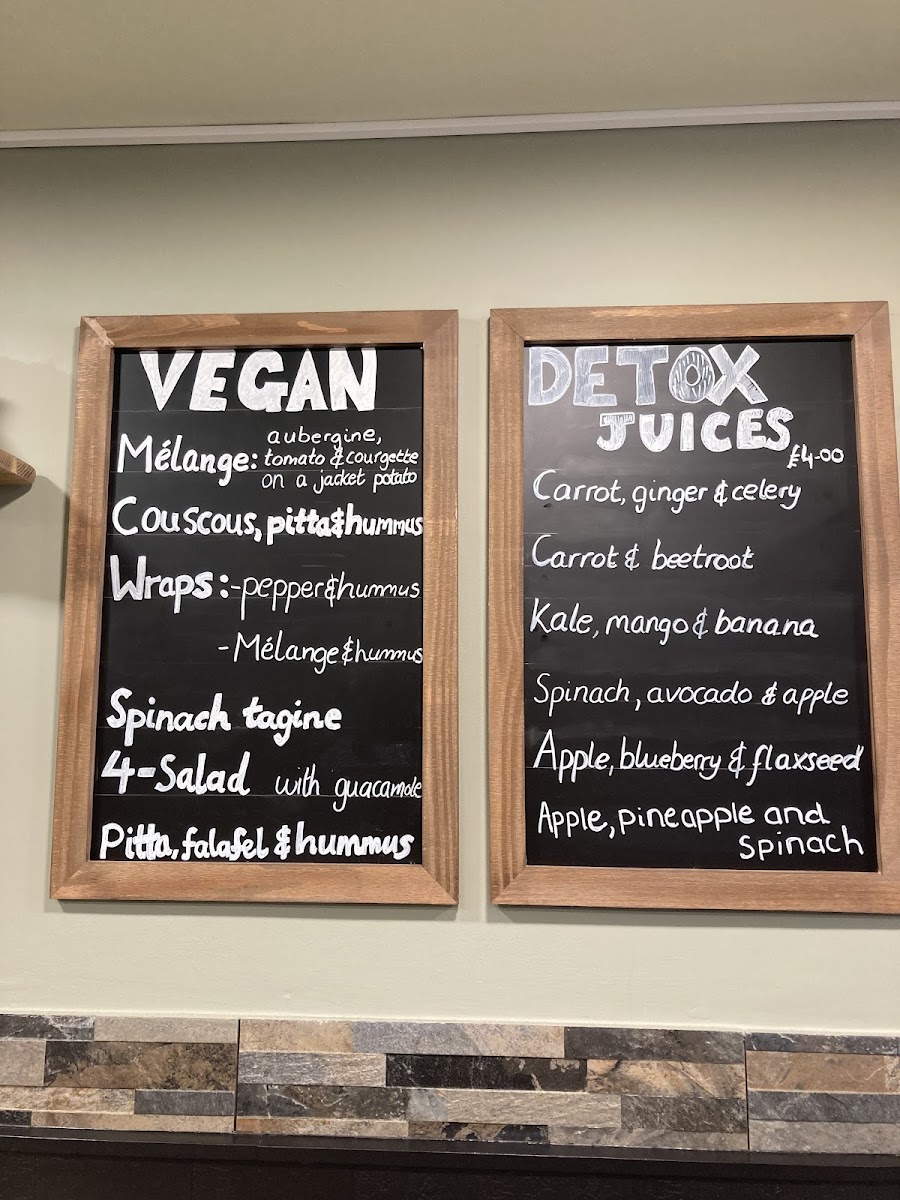 VEGAN
Mélange: aubergine,
tomato & courgette
on a jacket potato
Couscous, pitta & hummus
Wraps :- pepper & hummus
- Mélange & hummus
Spinach tagine
4-Salad with guacamole
Pitta, falafel & hummus
DETOX
JUICES
£4-00
Carrot, ginger & celery
Carrot & beetroot
Kale, mango & banana
Spinach, avocado & apple
Apple, blueberry & flaxseed
Apple, pineapple and
spinach